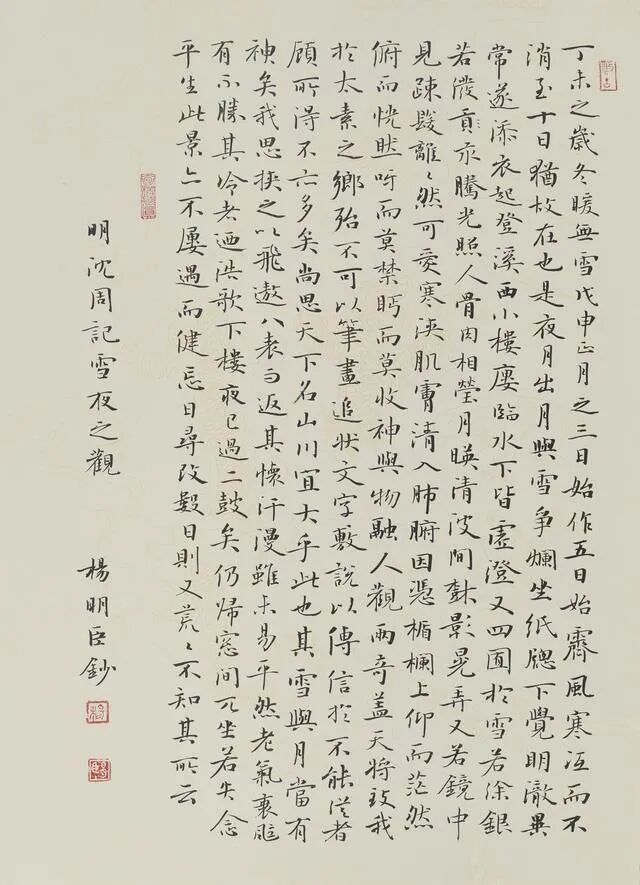 丁未之歲冬暖無雪戊申正月之三日始作五日始霽風寒沍而不
消至十日猶故在也是夜月出月與雪爭爛坐紙牕下覺明澈異
常遂添衣起登溪西小樓樓臨水下皆虛澄又四囿於雪若涂銀
若潑貢汞騰光照人骨肉相瑩月暎清波間樹影晃弄又若鏡中
見疎髮離〻然可愛寒浹肌膚清入肺腑因憑楯欄上仰而茫然
俯而恍然呀而莫禁眄而莫收神與物融人觀兩奇蓋天將致我
於太素之鄉殆不可以筆畫追狀文字敷說以傳信於不能從者
顧所得不亦多矣尚思天下名山川宜大乎此也其雪與月當有
神矣我思挾之以飛遨八表而返其懷汗漫雖未易平然老氣衰颯
有不勝其冷者迺浩歌下樓夜已過二鼓矣仍歸窓間兀坐若失念
平生此景亦不屢遇而健忘日尋改數日則又荒〻不知其所云
明沈周記雪夜之觀 楊明臣鈔